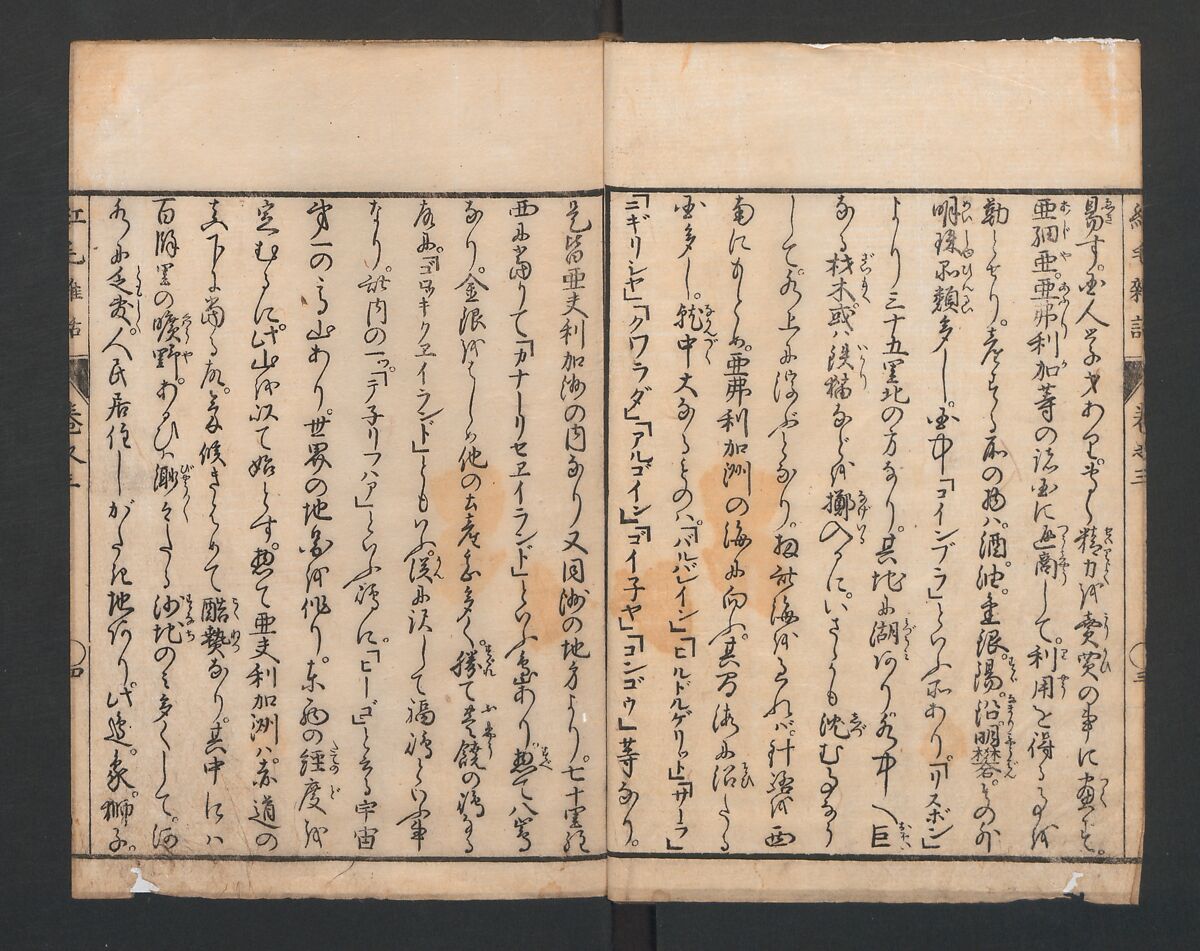 紅毛雑話
巻之三
三
易す。国人学才あり。専ら精力を売買の事に尽す。
亜細亜。亜弗利加等の諸国に通商して。利用を得る事を
勤とせり。産する所の物ハ。酒。油。金銀。錫。沿。明礬。その外
明珠品類多し。国中「コインブラ」といふ所あり。「リスボン」
より三十五里北の方なり。其地に湖ありて水中へ巨
なる材木或ハ鉄猫などを擲入るに。いさゝかも沈む事なう
して水上に浮ぶとなり。扨此海をわたれバ。針路を西
南にもとめ。亜弗利加洲の海に向ふ。其間海に沿たる
国多し。就中大なるものハ。「バルバーイン」「ヒルドルゲリット」「サーラ」
「ニギリシヤ」「クワラダ」「アルゴイン」「ゴイ子ヤ」「コンゴウ」等なり。
是皆亜夫利加洲の内なり又同洲の地方より。七十里程
西に当りて「カナーリセヱイランド」といふ島あり。惣て八島
なり。金銀をはしめ他の土産も多く。勝て豊饒の島なる
故に。「ゴロツキクヱイランド」ともいふ。漢に訳して福島といふ事
なり。此内の一ツ。「テ子リフハア」といふ島に。「ピーコ」とて宇宙
第一の高山あり。世界の地図を作り。東西の経度を
定むるに。此山を以て始とす。惣て亜夫利加洲ハ。赤道の
真下に当る故。気候きはめて酷熱なり。其中にハ
百余里の曠野。あるひハ渺々たる沙地のミ多くして。河
水に乏敷。人民居住しがたき地あり。此辺。象。獅子。
紅毛雑話
巻之三
四